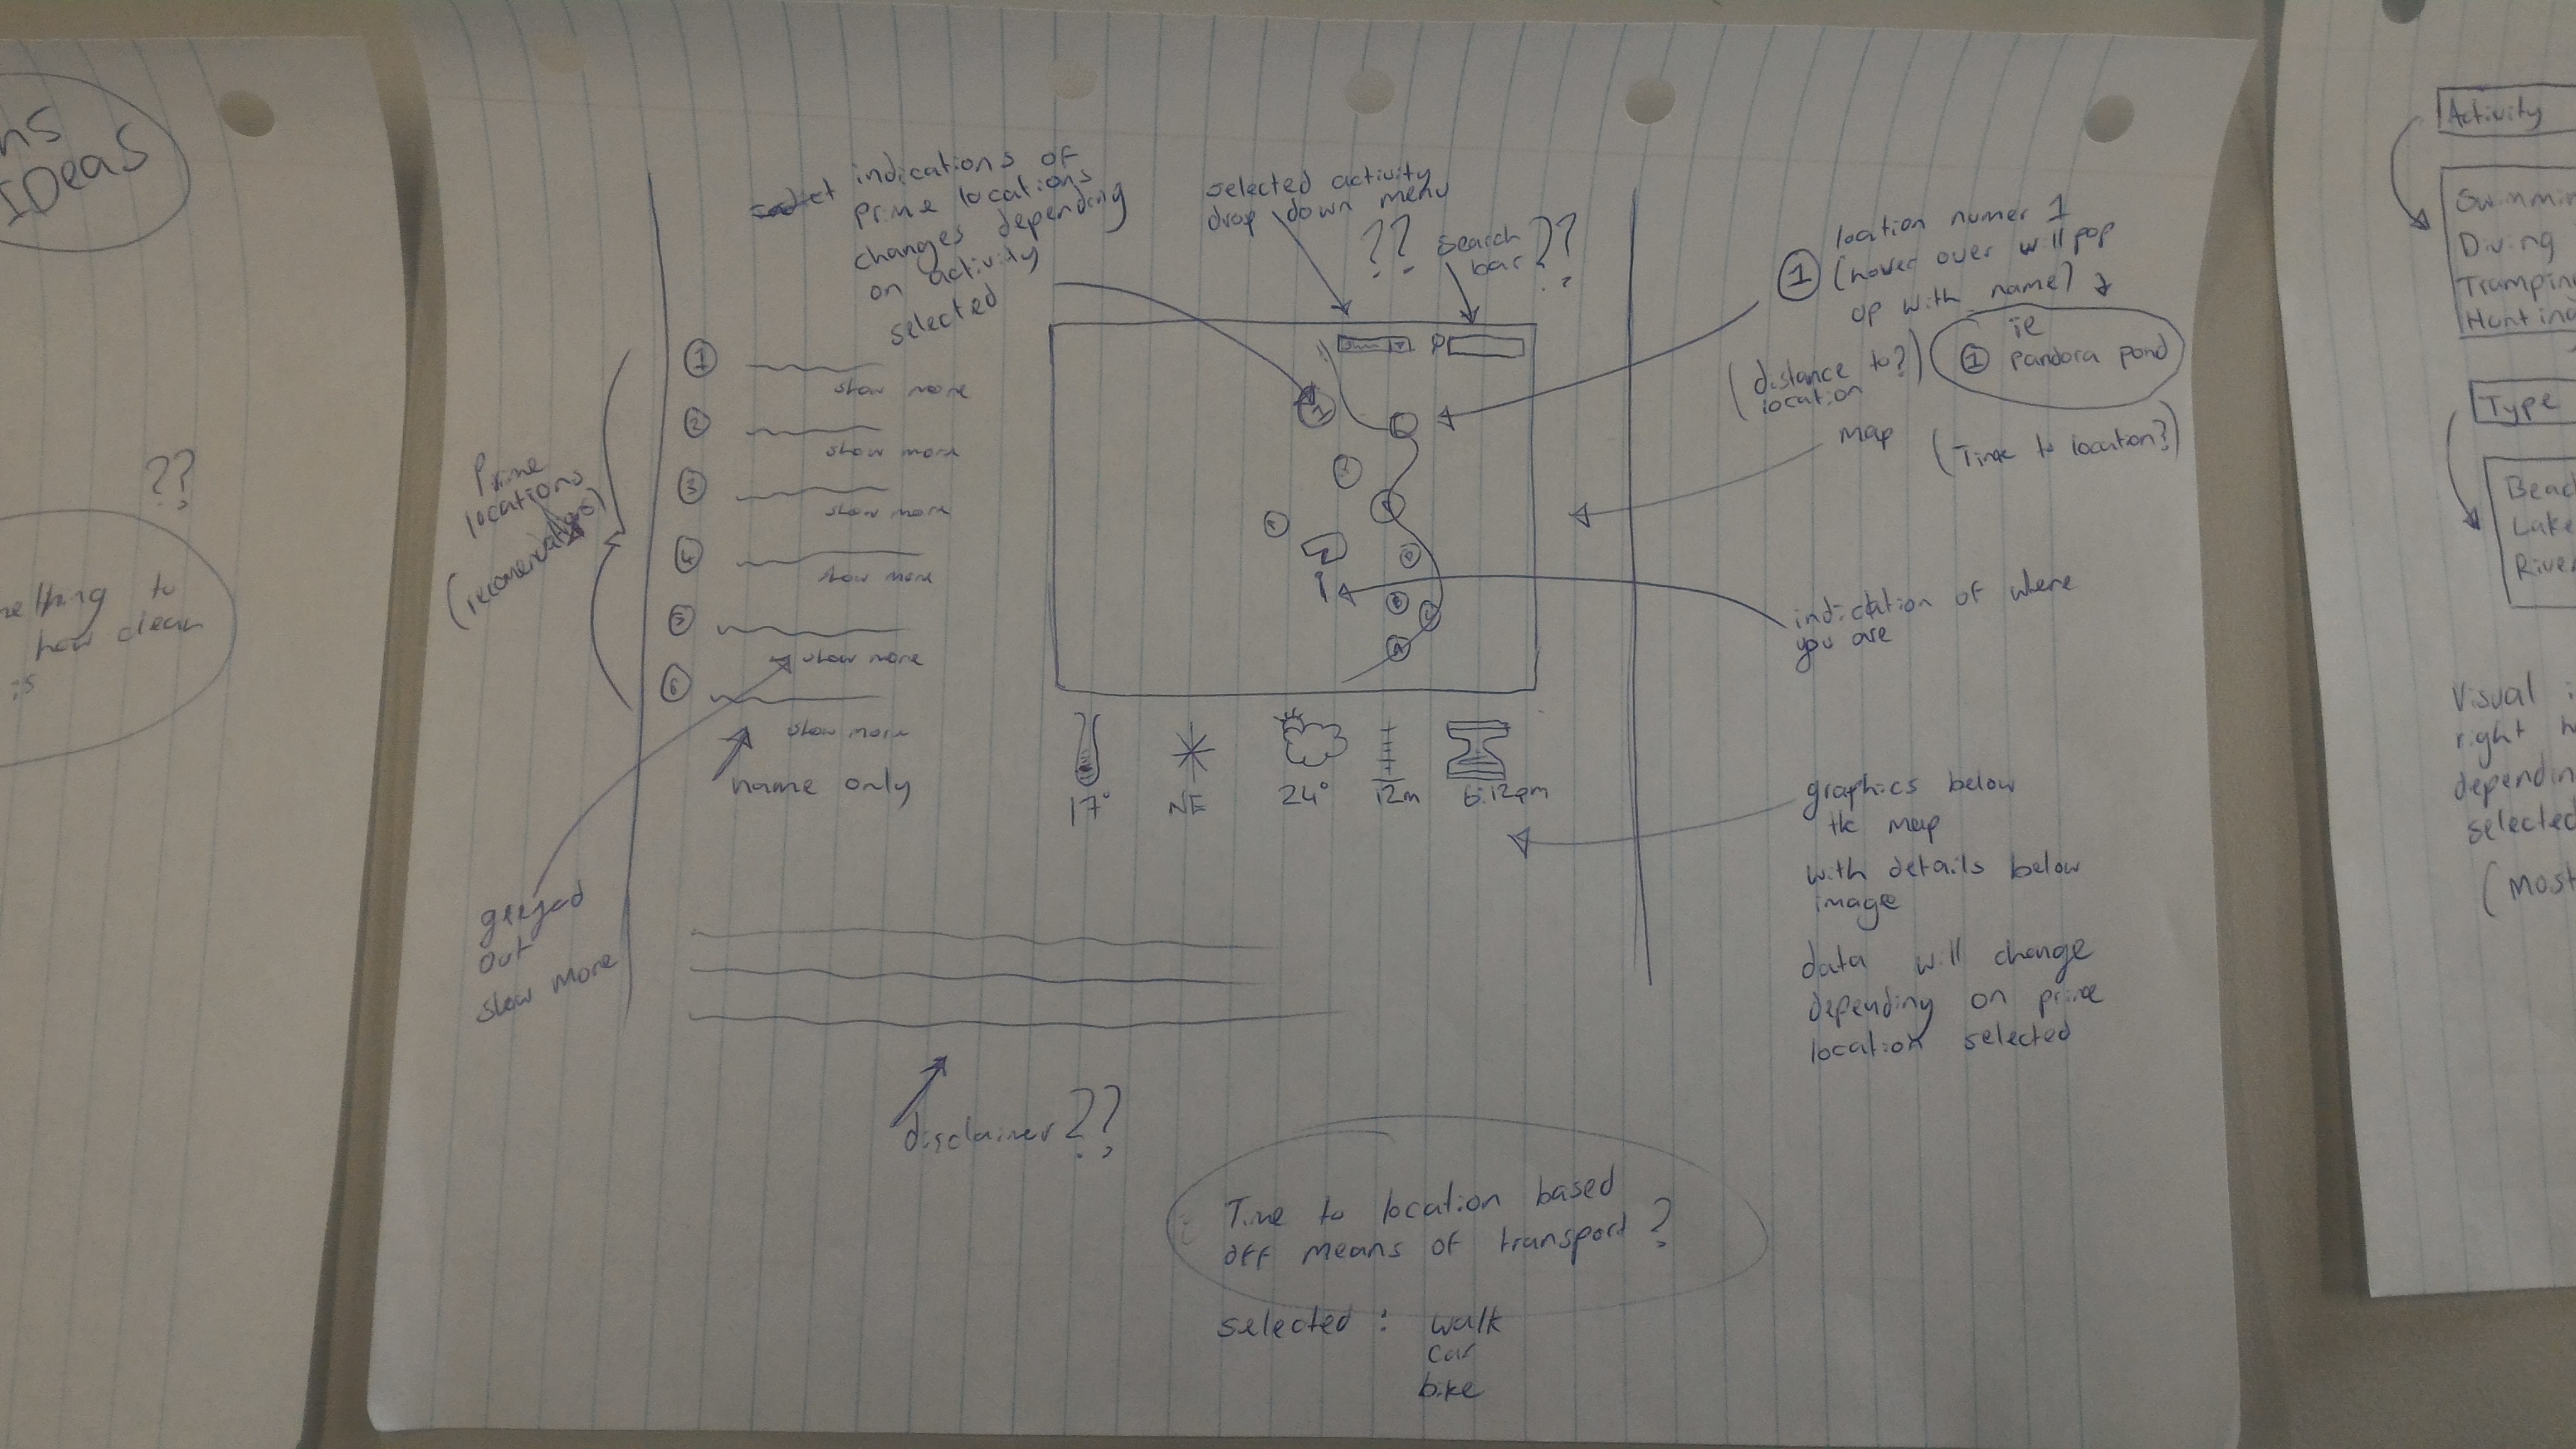 ns
IDeas
??
to
how clean
:s
indications of
prime locations
changes depending
on activity
selected
selected activity
drop down menu
??
search
bar
??
1
location numer 1
(hover over will pop
up with name)
ie
1 pandora pond
(distance to?)
location
map
(Time to location?)
Prime
locations
1
show more
2
show more
3
show more
4
show more
5
show more
6
show more
name only
1
indictation of where
you are
17°
NE
24°
12m
6:12pm
graphics below
the map
with details below
image
data will change
depending on prime
location selected
greyed
out
show more
disclaimer ??
Time to location based
off means of transport ?
selected : walk
car
bike
Activity
Diving
Type
Lake
Visual
right
selected
(most